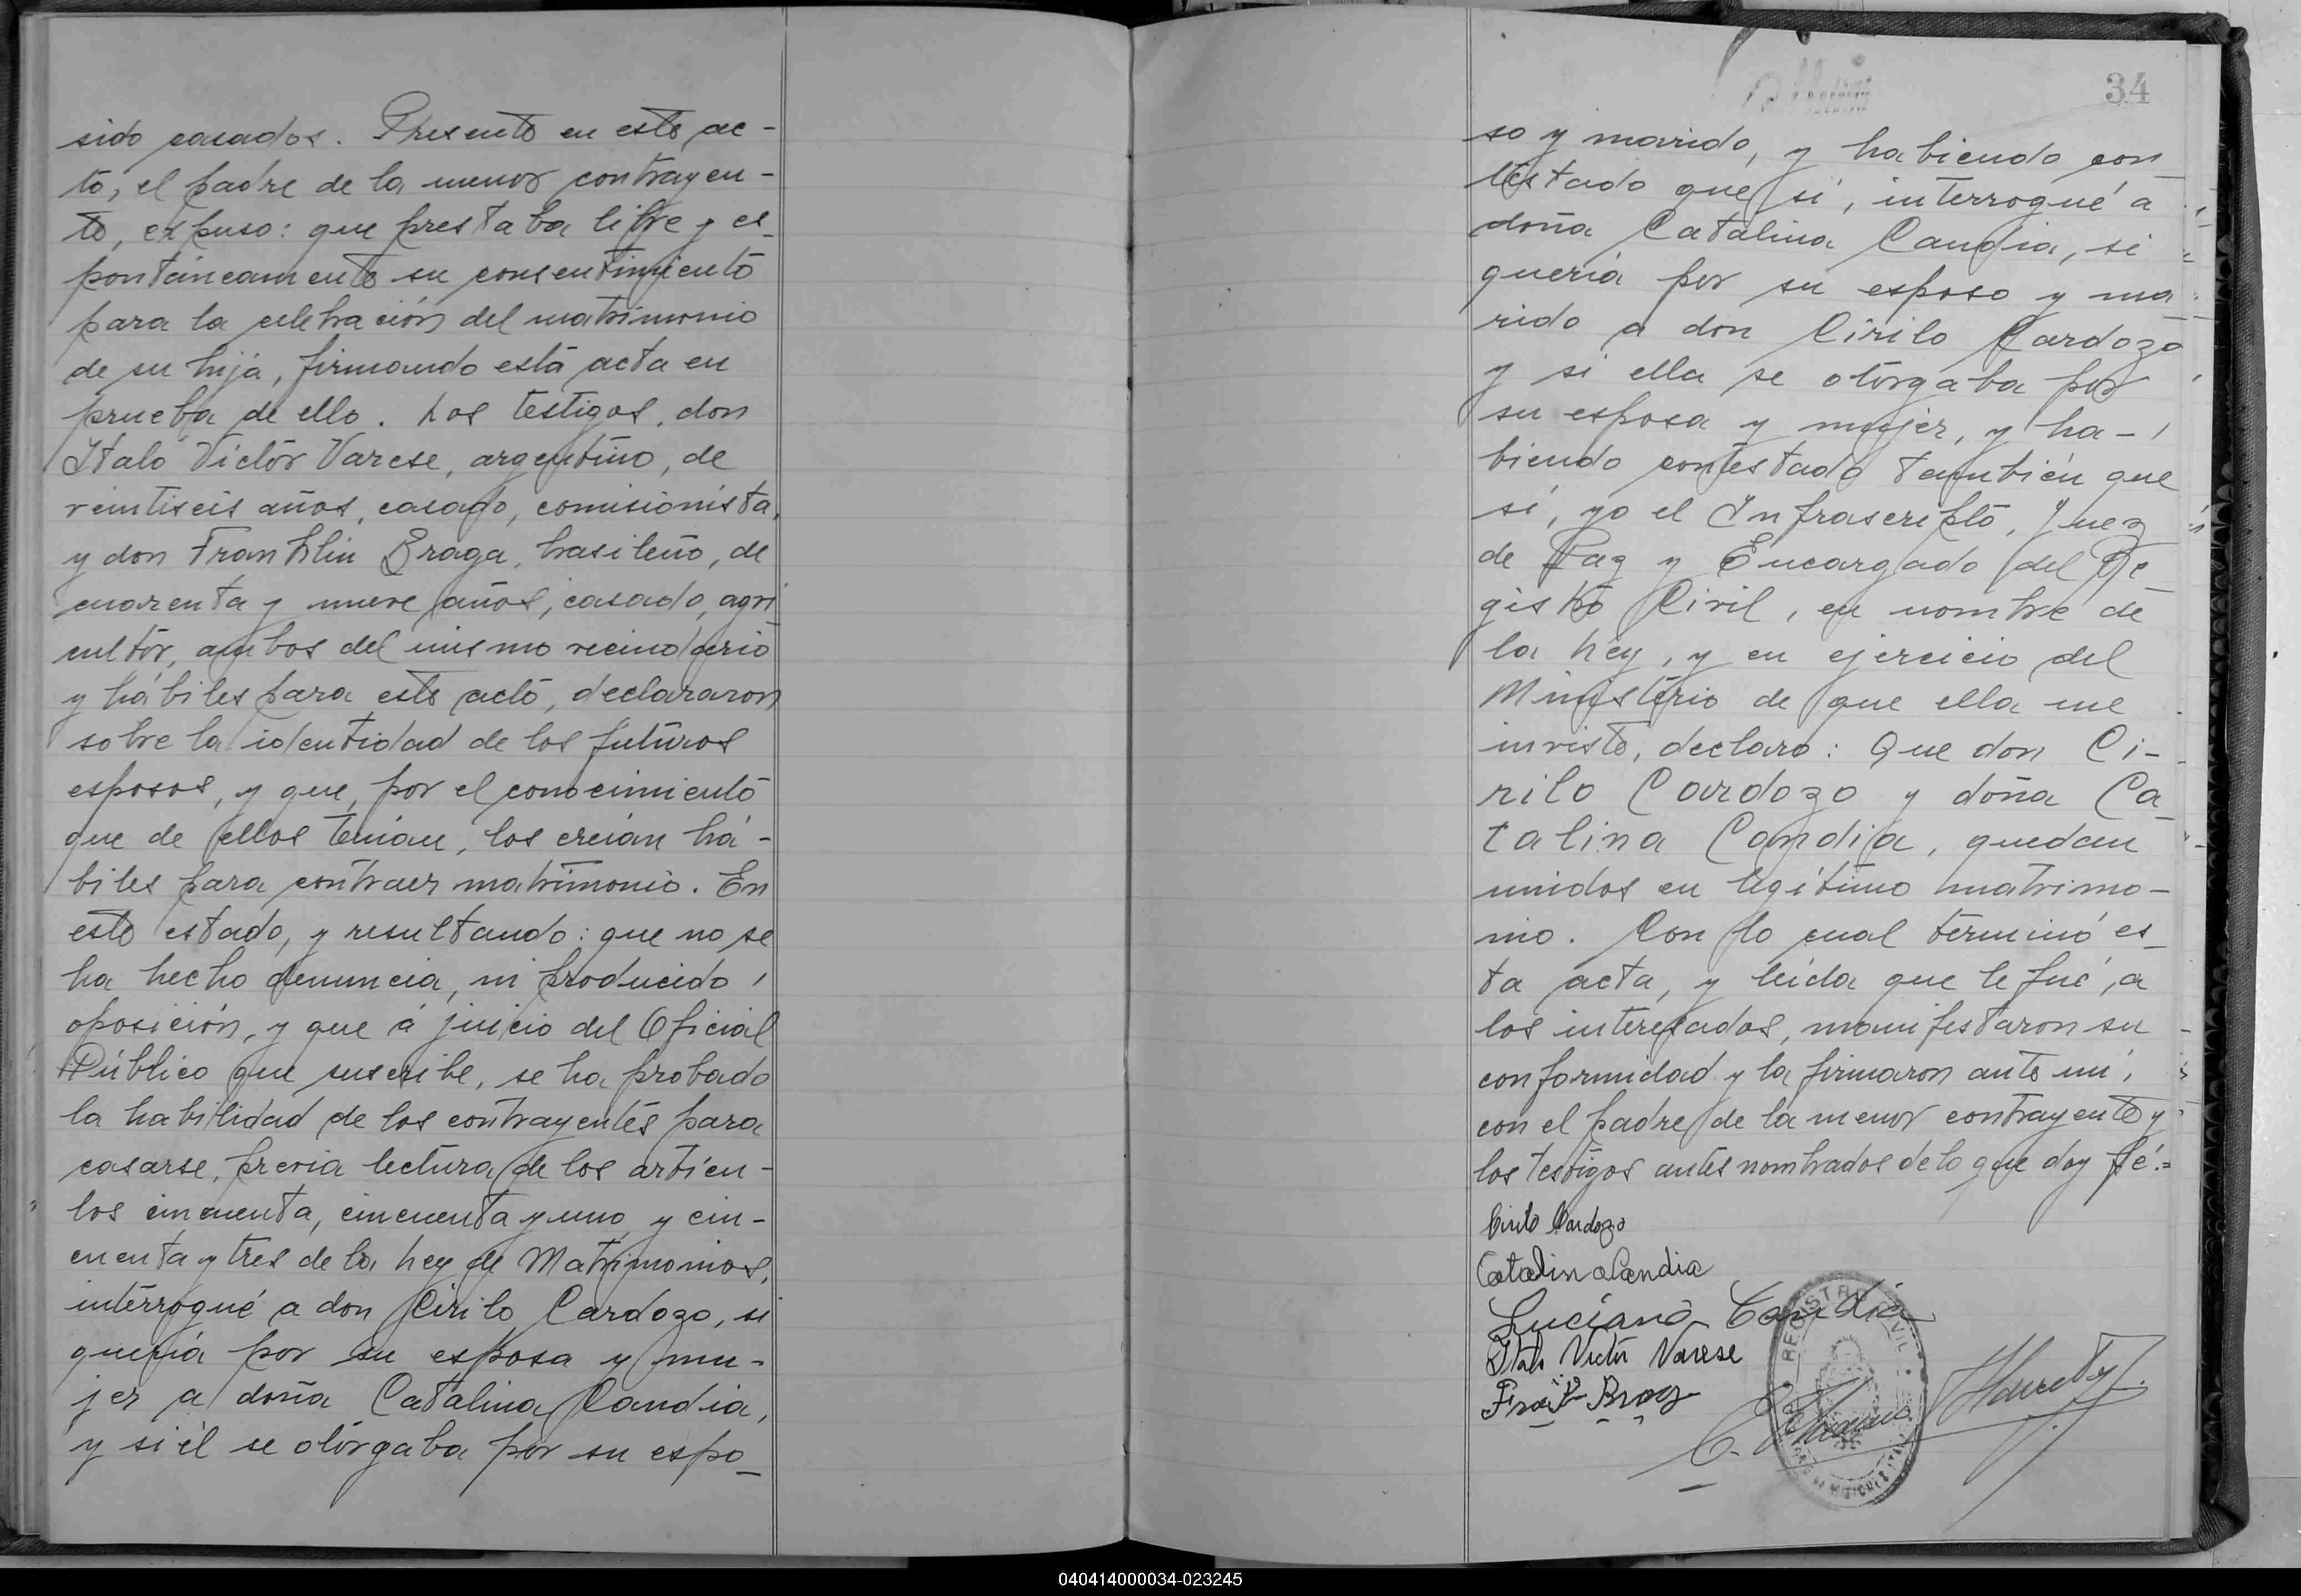 sido casados. Presente en este ac-
to, el padre de la menor contrayen-
te, expuso: que prestaba libre y es-
pontáneamente su consentimiento
para la celebración del matrimonio
de su hija, firmando esta acta en
prueba de ello. Los testigos, don
Italo Victor Varese, argentino, de
veintiseis años, casado, comisionista,
y don Franklin Braga, brasileño, de
cuarenta y nueve años, casado, agri-
cultor, ambos del mismo vecindario
y hábiles para este acto, declararon
sobre la identidad de los futuros
esposos, y que, por el conocimiento
que de ellos tenian, los creian há-
biles para contraer matrimonio. En
este estado, y resultando: que no se
ha hecho denuncia, ni producido
oposición, y que á juicio del Oficial
Público que suscribe, se ha probado
la habilidad de los contrayentes para
casarse, previa lectura de los articu-
los cincuenta, cincuenta y uno y cin-
cuenta y tres de la Ley de Matrimonios,
interrogué a don Cirilo Cardozo, si
queria por su esposa y mu-
jer a doña Catalina Candia,
y si él se otorgaba por su espo-
34
so y marido, y habiendo con-
testado que si, interrogué a
doña Catalina Candia, si
queria por su esposo y ma-
rido a don Cirilo Cardozo
y si ella se otorgaba por
su esposa y mujer, y ha-
biendo contestado también que
si, yo el Infrascripto, Juez
de Paz y Encargado del Re-
gistro Civil, en nombre de
la Ley, y en ejercicio del
Ministerio de que ella me
inviste, declaro: Que don Ci-
rilo Cardozo y doña Ca-
talina Candia, quedan
unidos en legítimo matrimo-
nio. Con lo cual terminó es-
ta acta, y leida que le fué, a
los interesados, manifestaron su
conformidad y la firmaron ante mi,
con el padre de la menor contrayente y
los testigos antes nombrados de lo que doy fé.=
Cirilo Cardozo
Catalina Candia
Luciano Candia
Italo Victor Varese
Braga
REGISTRO CIVIL
MISIONES
040414000034-023245